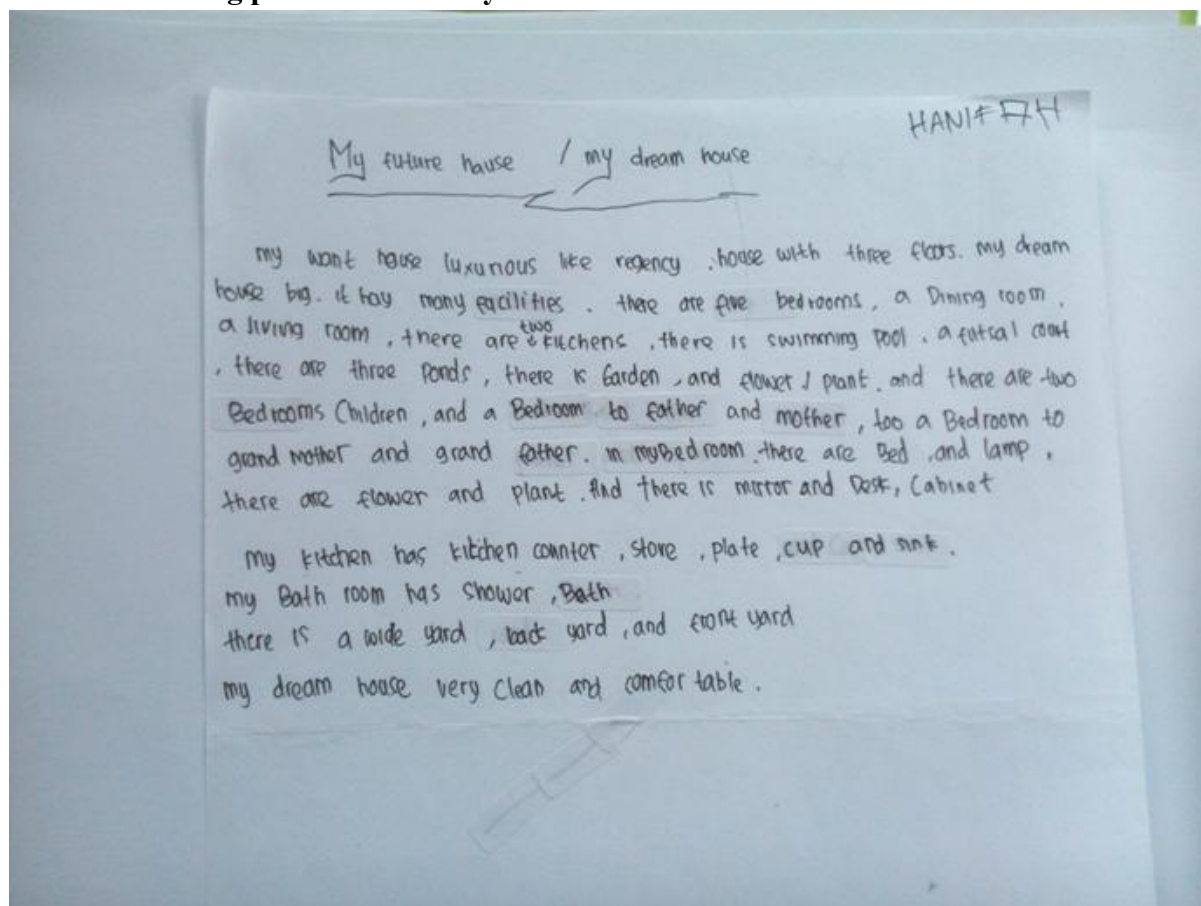 HANIFAH
My future hause / my dream house
my want house luxurious like regency . house with three floors. my dream
house big. it hay many facilities . there are five bedrooms , a Dining room ,
a living room , there are two kitchens , there is swimming pool . a futsal court
, there are three ponds , there is Garden , and flower / plant . and there are two
Bedrooms Children , and a Bedroom to father and mother , too a Bedroom to
grand mother and grand father . in my Bedroom . there are Bed , and lamp ,
there are flower and plant . And there is mirror and Desk, Cabinet
my kitchen has kitchen counter , stove , plate , cup and sink .
my Bath room has shower , Bath
there is a wide yard , back yard , and front yard
my dream house very clean and comfor table .